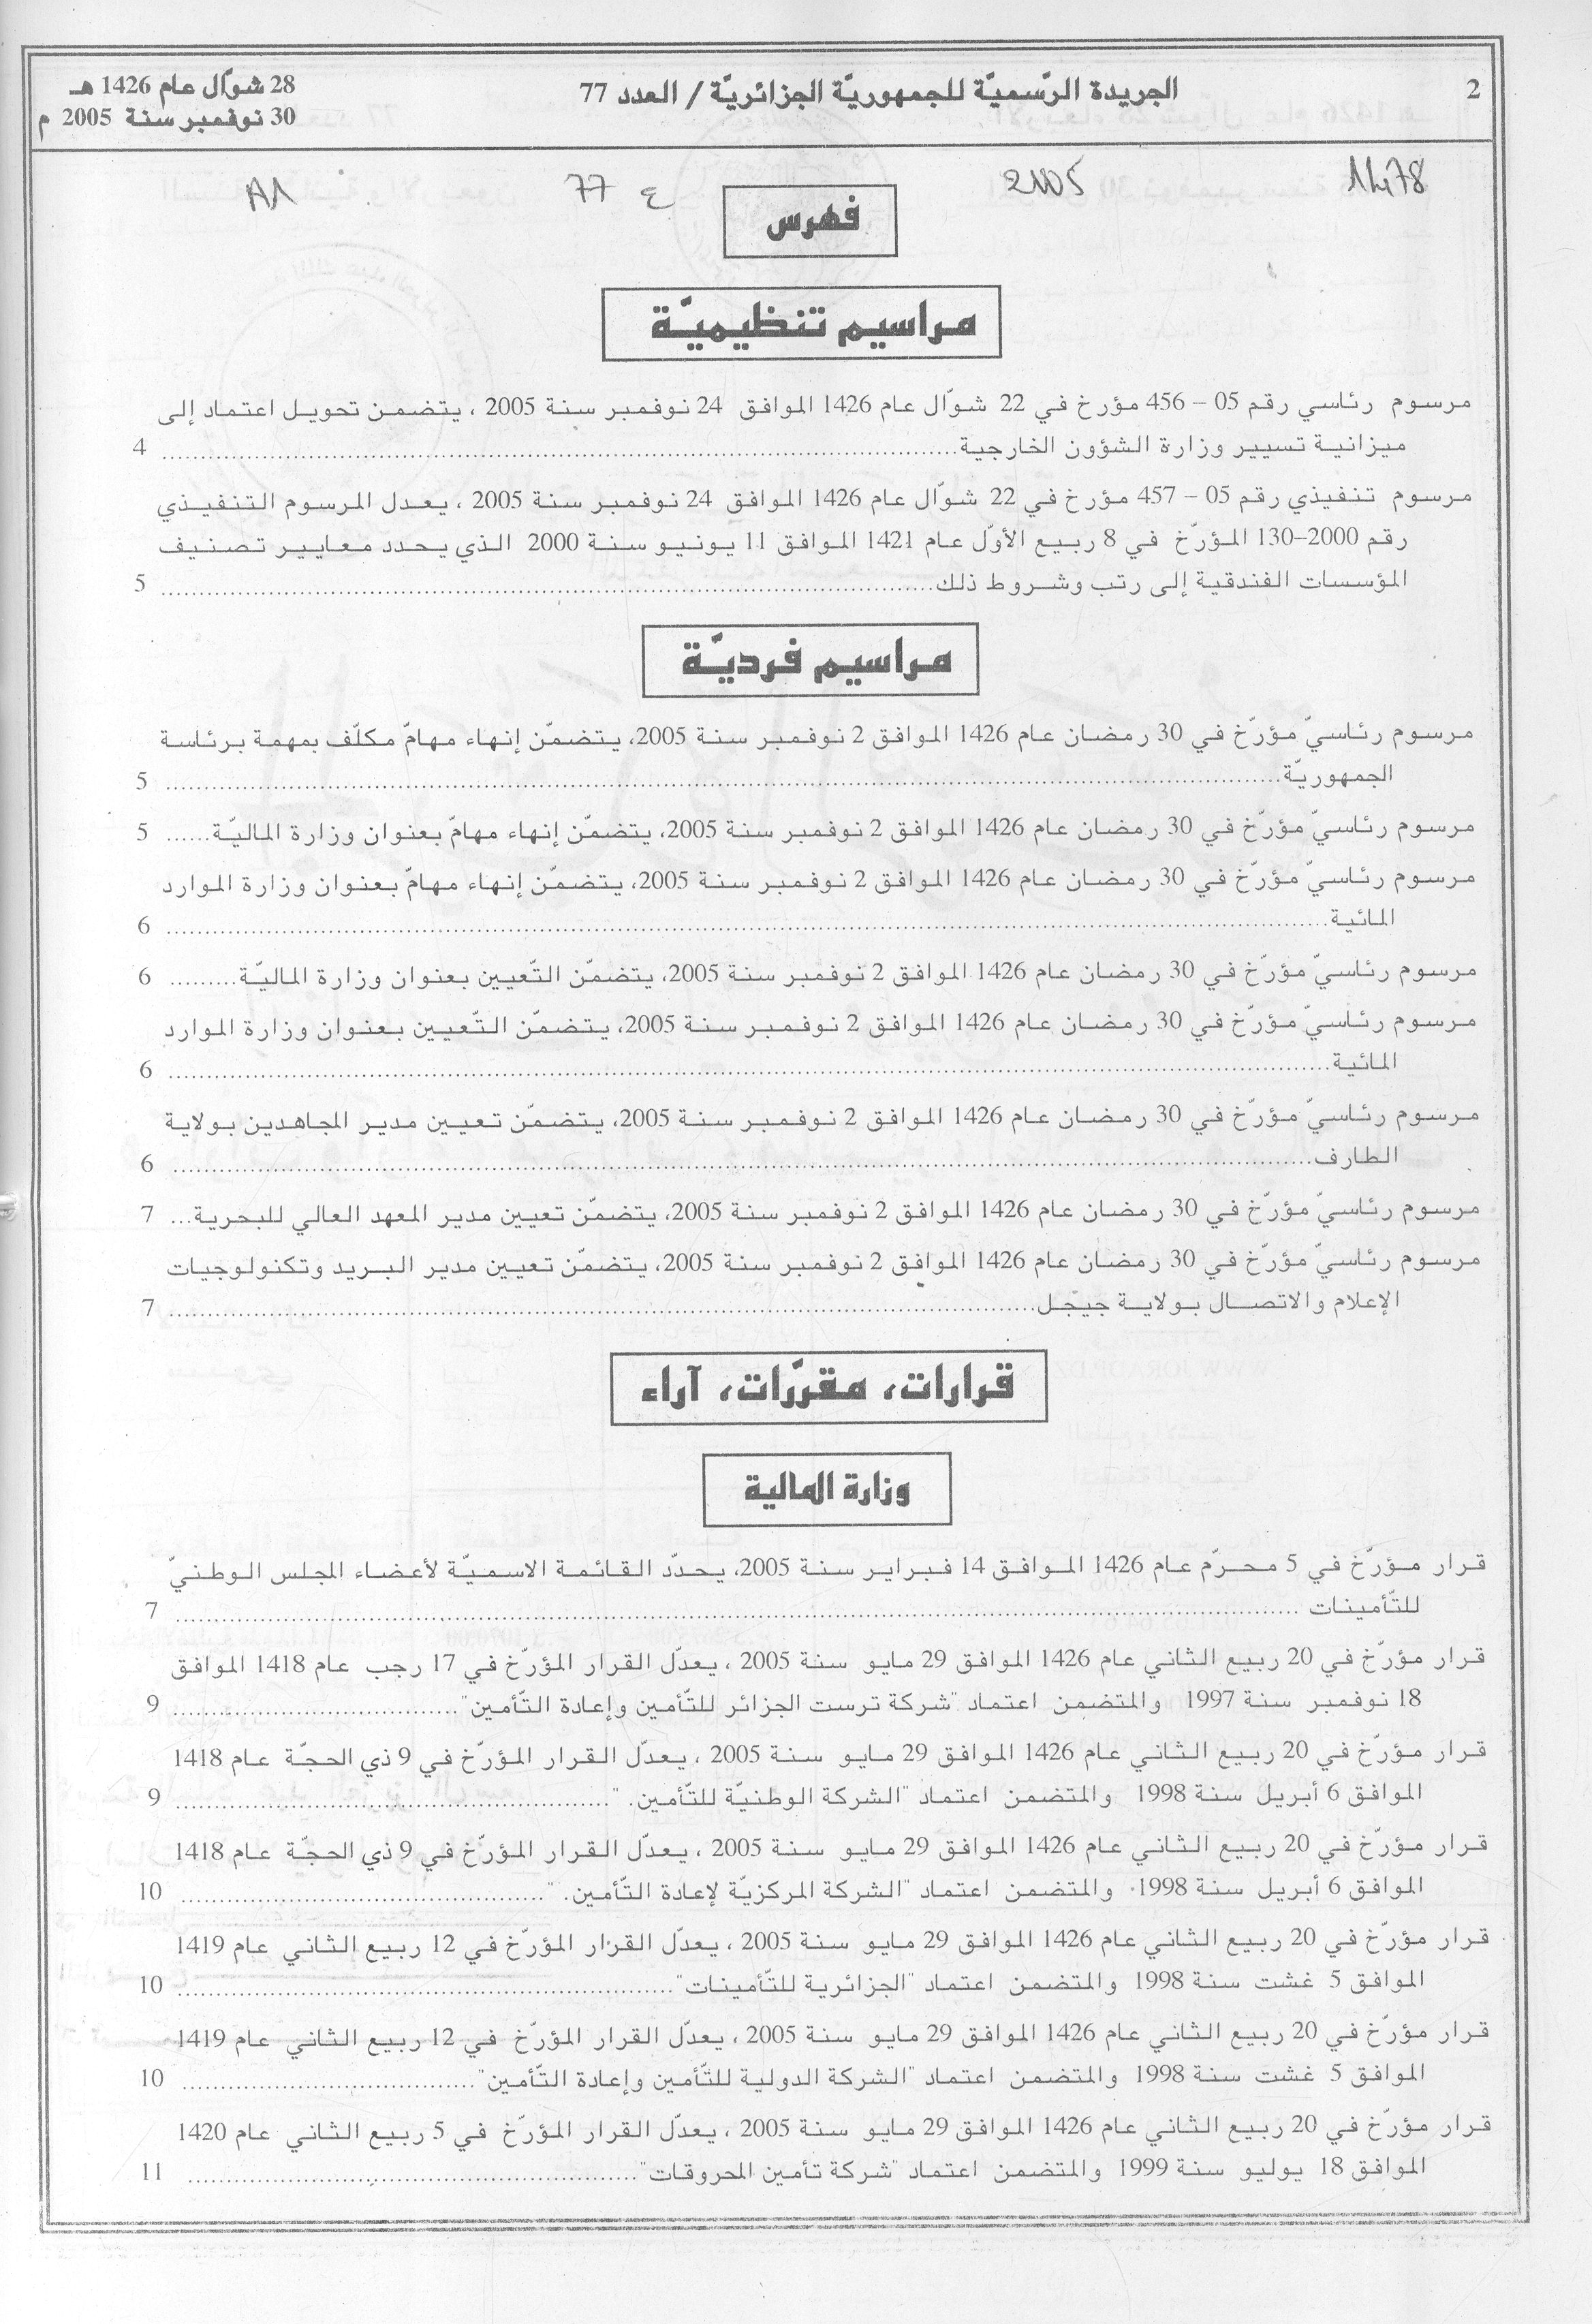 2
الجريدة الرّسميّة للجمهوريّة الجزائريّة / العدد 77
28 شوّال عام 1426 هـ
30 نوفمبر سنة 2005 م
1478
2005
ع 77
A1
فهرس
مراسيم تنظيميّة
مرسوم رئاسي رقم 05 – 456 مؤرخ في 22 شوّال عام 1426 الموافق 24 نوفمبر سنة 2005 ، يتضمن تحويل اعتماد إلى
ميزانية تسيير وزارة الشؤون الخارجية........ 4
مرسوم تنفيذي رقم 05 – 457 مؤرخ في 22 شوّال عام 1426 الموافق 24 نوفمبر سنة 2005 ، يعدل المرسوم التنفيذي
رقم 2000–130 المؤرّخ في 8 ربيع الأوّل عام 1421 الموافق 11 يونيو سنة 2000 الذي يحدد معايير تصنيف
المؤسسات الفندقية إلى رتب وشروط ذلك........ 5
مراسيم فرديّة
مرسوم رئاسيّ مؤرّخ في 30 رمضان عام 1426 الموافق 2 نوفمبر سنة 2005، يتضمّن إنهاء مهامّ مكلّف بمهمة برئاسة
الجمهوريّة........ 5
مرسوم رئاسيّ مؤرّخ في 30 رمضان عام 1426 الموافق 2 نوفمبر سنة 2005، يتضمّن إنهاء مهامّ بعنوان وزارة الماليّة...... 5
مرسوم رئاسيّ مؤرّخ في 30 رمضان عام 1426 الموافق 2 نوفمبر سنة 2005، يتضمّن إنهاء مهامّ بعنوان وزارة الموارد
المائية........ 6
مرسوم رئاسيّ مؤرّخ في 30 رمضان عام 1426 الموافق 2 نوفمبر سنة 2005، يتضمّن التّعيين بعنوان وزارة الماليّة......... 6
مرسوم رئاسيّ مؤرّخ في 30 رمضان عام 1426 الموافق 2 نوفمبر سنة 2005، يتضمّن التّعيين بعنوان وزارة الموارد
المائية........ 6
مرسوم رئاسيّ مؤرّخ في 30 رمضان عام 1426 الموافق 2 نوفمبر سنة 2005، يتضمّن تعيين مدير المجاهدين بولاية
الطارف........ 6
مرسوم رئاسيّ مؤرّخ في 30 رمضان عام 1426 الموافق 2 نوفمبر سنة 2005، يتضمّن تعيين مدير المعهد العالي للبحرية... 7
مرسوم رئاسيّ مؤرّخ في 30 رمضان عام 1426 الموافق 2 نوفمبر سنة 2005، يتضمّن تعيين مدير البريد وتكنولوجيات
الإعلام والاتصال بولاية جيجل........ 7
قرارات، مقرّرات، آراء
وزارة المالية
قرار مؤرّخ في 5 محرّم عام 1426 الموافق 14 فبراير سنة 2005، يحدّد القائمة الاسميّة لأعضاء المجلس الوطنيّ
للتّأمينات ........ 7
قرار مؤرّخ في 20 ربيع الثاني عام 1426 الموافق 29 مايو سنة 2005 ، يعدّل القرار المؤرّخ في 17 رجب عام 1418 الموافق
18 نوفمبر سنة 1997 والمتضمن اعتماد "شركة ترست الجزائر للتّأمين وإعادة التّأمين"........ 9
قرار مؤرّخ في 20 ربيع الثاني عام 1426 الموافق 29 مايو سنة 2005 ، يعدّل القرار المؤرّخ في 9 ذي الحجّة عام 1418
الموافق 6 أبريل سنة 1998 والمتضمن اعتماد "الشركة الوطنيّة للتّأمين. "........ 9
قرار مؤرّخ في 20 ربيع الثاني عام 1426 الموافق 29 مايو سنة 2005 ، يعدّل القرار المؤرّخ في 9 ذي الحجّة عام 1418
الموافق 6 أبريل سنة 1998 والمتضمن اعتماد "الشركة المركزيّة لإعادة التّأمين. "........ 10
قرار مؤرّخ في 20 ربيع الثاني عام 1426 الموافق 29 مايو سنة 2005 ، يعدّل القرار المؤرّخ في 12 ربيع الثاني عام 1419
الموافق 5 غشت سنة 1998 والمتضمن اعتماد "الجزائرية للتّأمينات"........ 10
قرار مؤرّخ في 20 ربيع الثاني عام 1426 الموافق 29 مايو سنة 2005 ، يعدّل القرار المؤرّخ في 12 ربيع الثاني عام 1419
الموافق 5 غشت سنة 1998 والمتضمن اعتماد "الشركة الدولية للتّأمين وإعادة التّأمين"........ 10
قرار مؤرّخ في 20 ربيع الثاني عام 1426 الموافق 29 مايو سنة 2005 ، يعدّل القرار المؤرّخ في 5 ربيع الثاني عام 1420
الموافق 18 يوليو سنة 1999 والمتضمن اعتماد "شركة تأمين المحروقات"........ 11